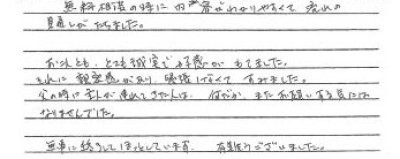 無料相談の時に内容がわかりやすくて流れの
見通しがたちました。
お二人とも、とても誠実で好感がもてました。
それに親密感があり、緊張しなくてすみました。
父の時に主人が連れてきた人は、何だか、またお願いする気には
なりませんでした。
無事に終了してほっとしています。有難うございました。